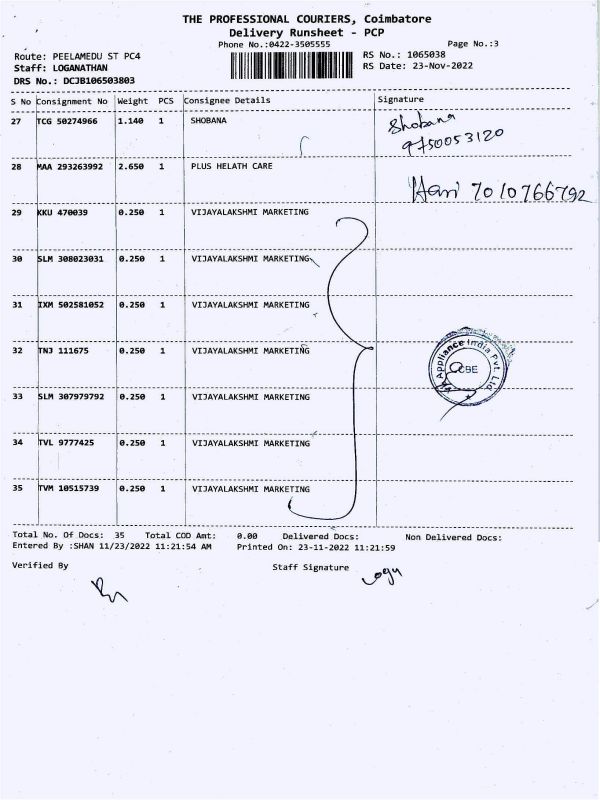 THE PROFESSIONAL COURIERS, Coimbatore
Delivery Runsheet - PCP
Phone No.:0422-3505555
Page No.:3
Route: PEELAMEDU ST PC4
RS No.: 1065038
Staff: LOGANATHAN
RS Date: 23-Nov-2022
DRS No.: DCJB106503803
S No Consignment No Weight PCS Consignee Details Signature
27 TCG 50274966 1.140 1 SHOBANA Shobana
9750053120
28 MAA 293263992 2.650 1 PLUS HELATH CARE
Hari 7010766792
29 KKU 470039 0.250 1 VIJAYALAKSHMI MARKETING
30 SLM 308023031 0.250 1 VIJAYALAKSHMI MARKETING
31 IXM 502581052 0.250 1 VIJAYALAKSHMI MARKETING
32 TNJ 111675 0.250 1 VIJAYALAKSHMI MARKETING
Appliance India Pvt. Ltd
CBE
33 SLM 307979792 0.250 1 VIJAYALAKSHMI MARKETING
34 TVL 9777425 0.250 1 VIJAYALAKSHMI MARKETING
35 TVM 10515739 0.250 1 VIJAYALAKSHMI MARKETING
Total No. Of Docs: 35 Total COD Amt: 0.00 Delivered Docs: Non Delivered Docs:
Entered By :SHAN 11/23/2022 11:21:54 AM Printed On: 23-11-2022 11:21:59
Verified By Staff Signature
Logu